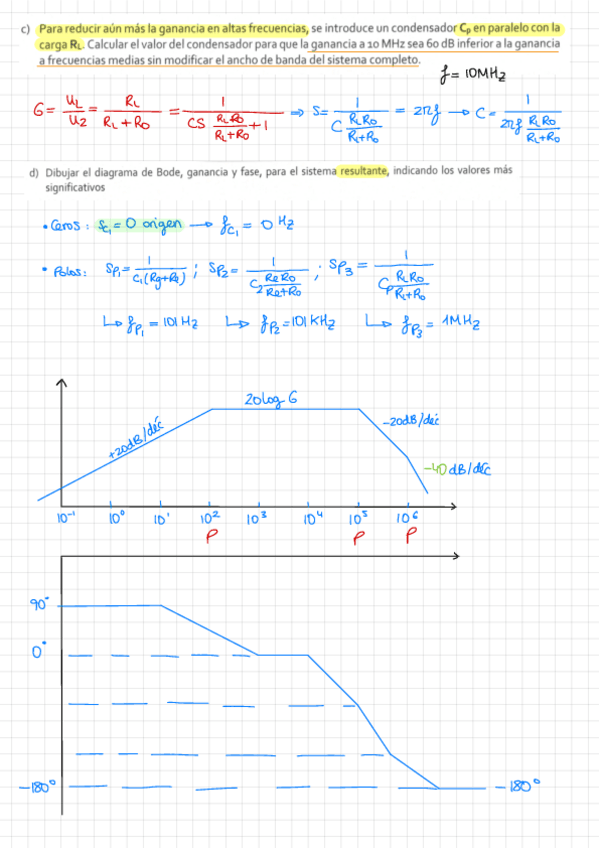 c) Para reducir aún más la ganancia en altas frecuencias, se introduce un condensador Cp en paralelo con la
carga RL. Calcular el valor del condensador para que la ganancia a 10 MHz sea 60 dB inferior a la ganancia
a frecuencias medias sin modificar el ancho de banda del sistema completo.
f = 10MHz
G = UL/U2 = RL/(RL + Ro) = 1/(CS RL Ro/(RL+Ro) + 1) ⇒ S = 1/(C RL Ro/(RL+Ro)) = 2πf → C = 1/(2πf RL Ro/(RL+Ro))
d) Dibujar el diagrama de Bode, ganancia y fase, para el sistema resultante, indicando los valores más
significativos
• Ceros: Sc1 = 0 origen → fc1 = 0 Hz
• Polos: Sp1 = 1/(C1(Rg+Re)) ; Sp2 = 1/(C2 Re Ro/(Re+Ro)) ; Sp3 = 1/(Cp RL Ro/(RL+Ro))
↳ fp1 = 101 Hz ↳ fp2 = 101 KHz ↳ fp3 = 1MHz
20log G
+20dB/déc
-20dB/déc
-40dB/déc
10^-1 10^0 10^1 10^2 10^3 10^4 10^5 10^6
P P P
90°
0°
-180° -180°